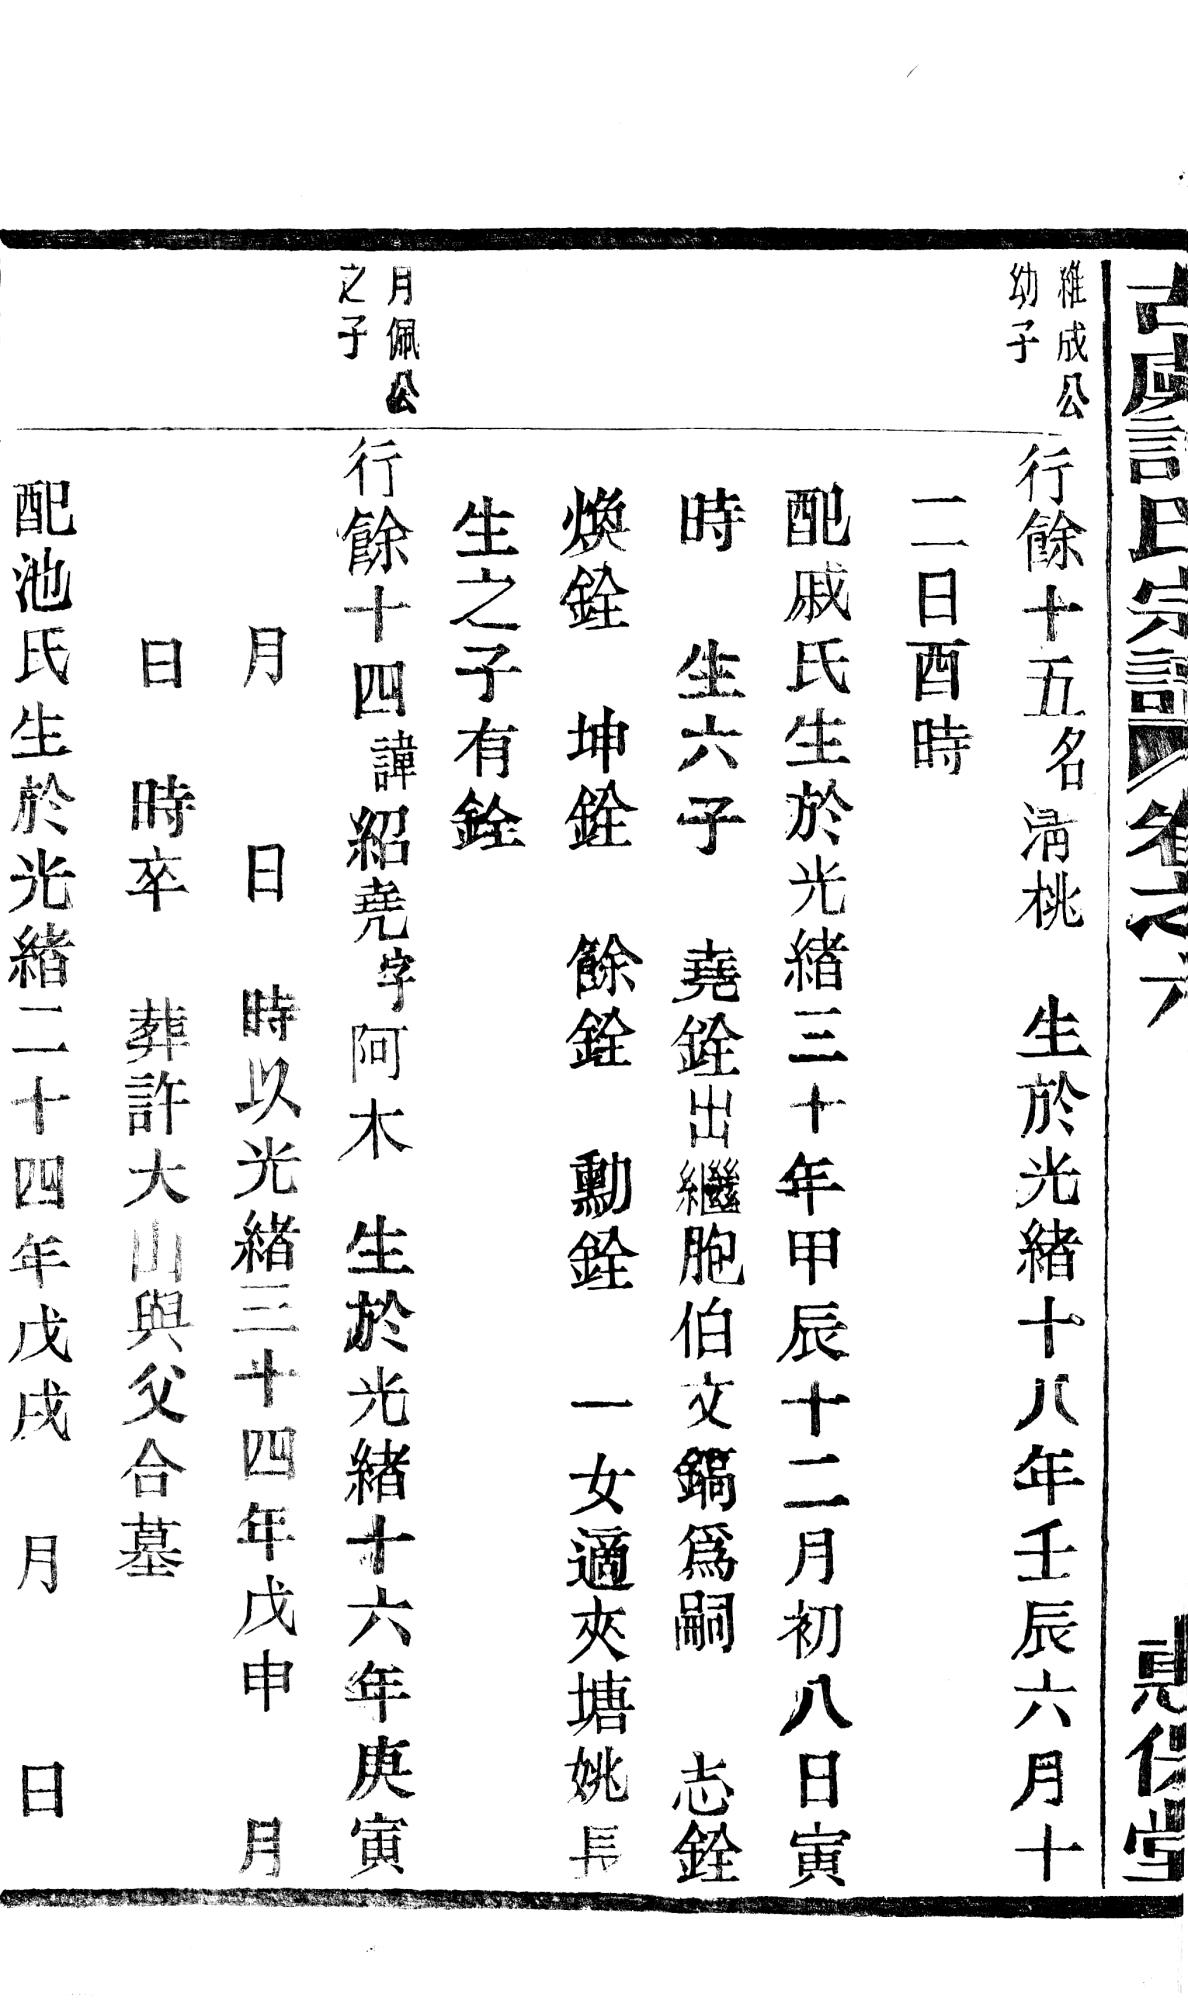 古虞許氏宗譜 卷之六 惠保堂
維成公
幼子
行餘十五名清桃 生於光緒十八年壬辰六月十
二日酉時
配戚氏生於光緒三十年甲辰十二月初八日寅
時 生六子 堯銓出繼胞伯文鎬爲嗣 志銓
煥銓 坤銓 餘銓 勳銓 一女適夾塘姚長
生之子有銓
月佩公
之子
行餘十四諱紹堯字阿木 生於光緒十六年庚寅
月 日 時以光緒三十四年戊申 月
日 時卒 葬許大山與父合墓
配池氏生於光緒二十四年戊戌 月 日